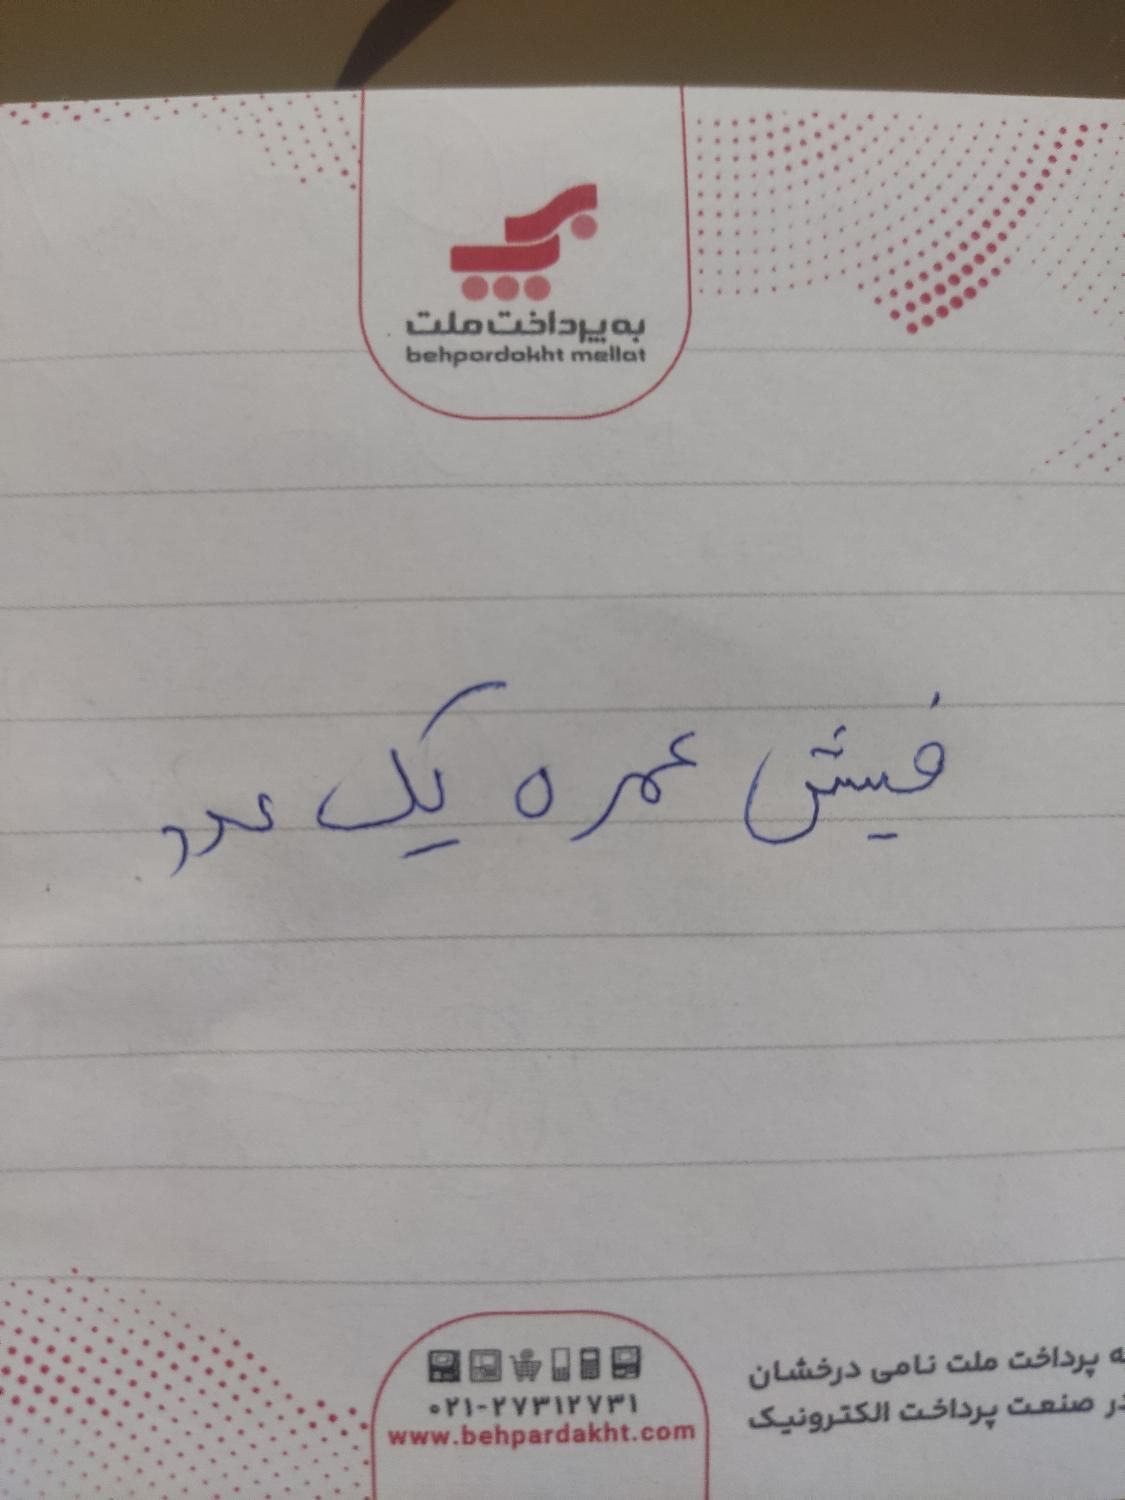 به پرداخت ملت
behpardakht mellat
فیش عمره یک عدد
۰۲۱-۲۷۳۱۲۷۳۱
www.behpardakht.com
ه پرداخت ملت نامی درخشان
در صنعت پرداخت الکترونیک